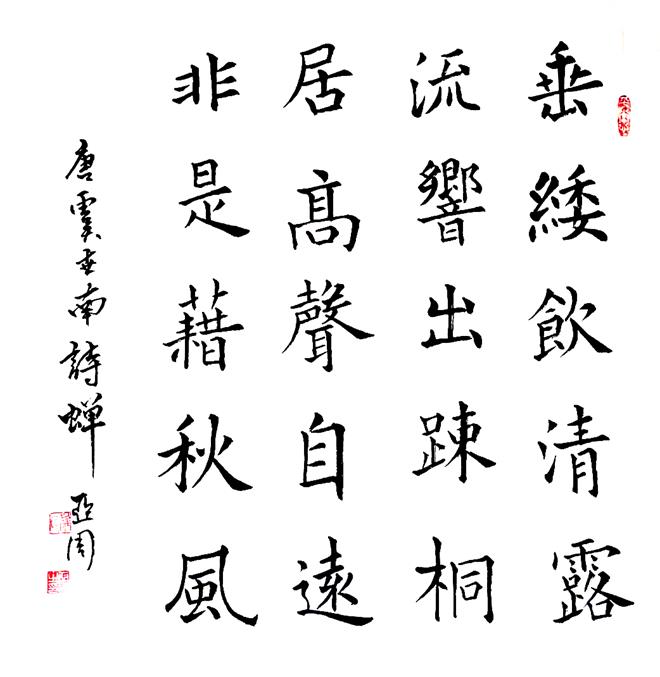 垂緌飲清露
流響出踈桐
居髙聲自遠
非是藉秋風
唐虞世南詩蟬 亞周